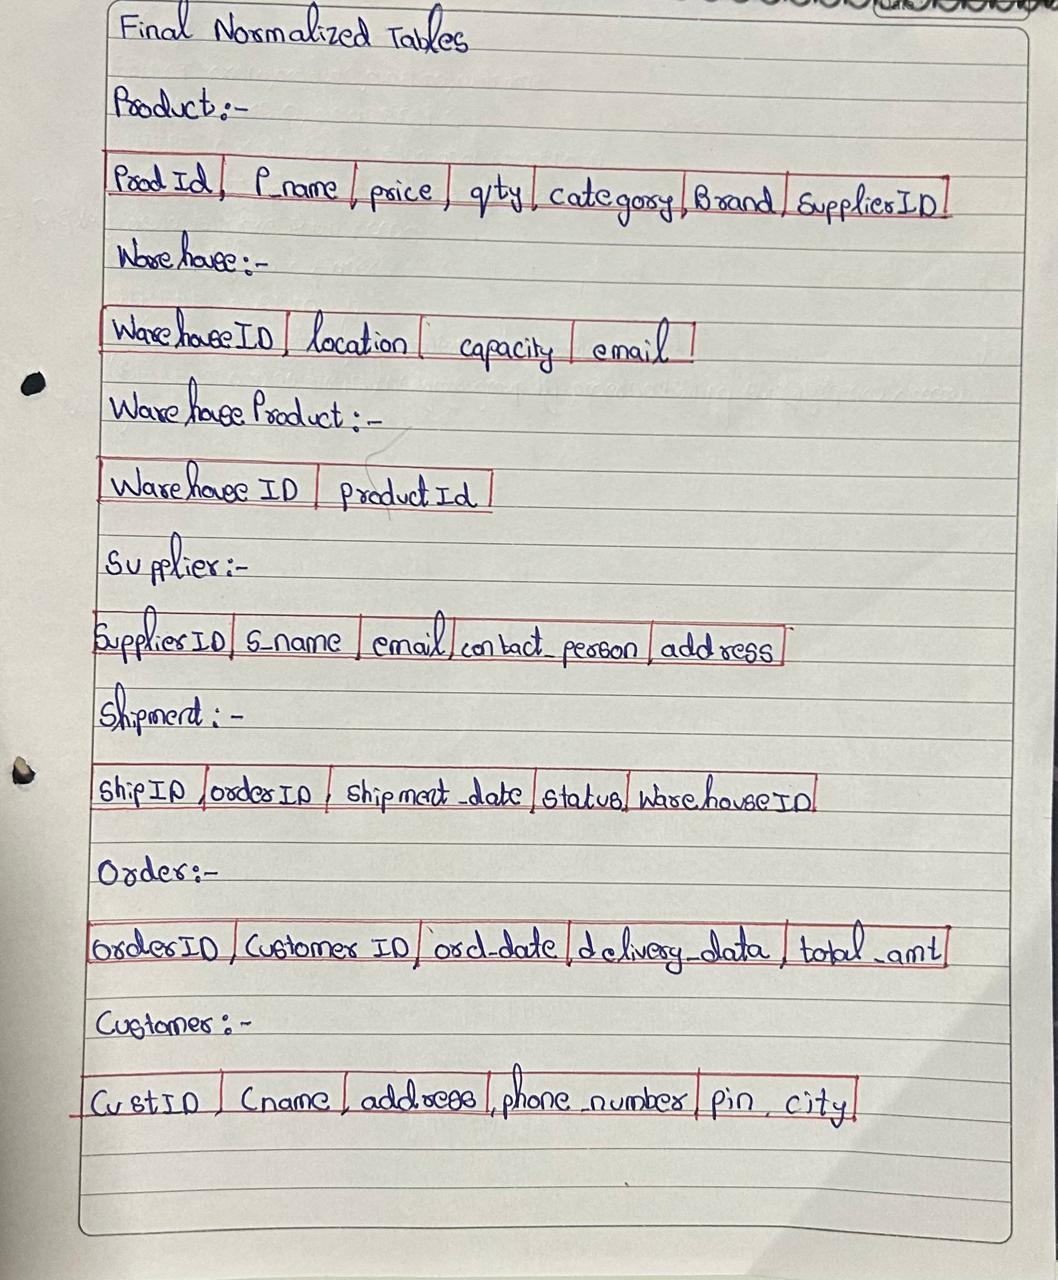 Final Normalized Tables
Product:-
Prod Id | P_name | price | q/ty | category | Brand | SupplierID
Warehouse:-
WarehouseID | location | capacity | email
WarehouseProduct:-
Warehouse ID | product Id
Supplier:-
SupplierID | S_name | email | contact_person | address
Shipment:-
ShipID | orderID | Shipment_date | status | WarehouseID
Order:-
OrderID | Customer ID | ord_date | delivery_data | total_amt
Customer:-
CustID | Cname | address | phone_number | pin, city